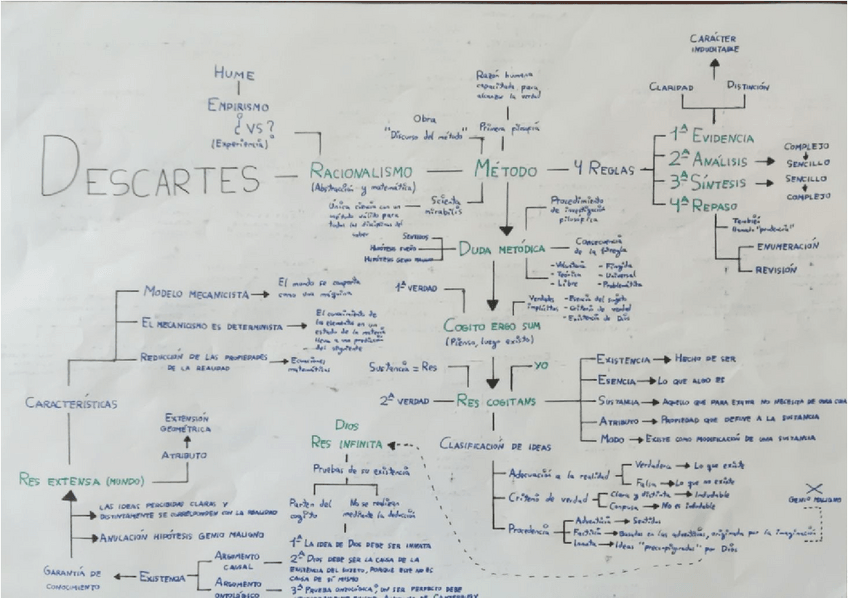 DESCARTES
HUME
EMPIRISMO
¿VS?
(Experiencia)
RACIONALISMO
(Abstracción y matemática)
Obra
"Discurso del método"
Razón humana
capacitada para
alcanzar la verdad
Primera
MÉTODO
Scientia
mirabilis
Única ciencia con un
método válido para
todas las disciplinas del
saber
4 REGLAS
CARÁCTER
INDUBITABLE
CLARIDAD
DISTINCIÓN
1ª EVIDENCIA
2ª ANÁLISIS
COMPLEJO
SENCILLO
3ª SÍNTESIS
SENCILLO
COMPLEJO
4ª REPASO
También
llamado "prudencia"
ENUMERACIÓN
REVISIÓN
DUDA METÓDICA
SENTIDOS
HIPÓTESIS SUEÑO
HIPÓTESIS GENIO MALIGNO
Procedimiento
de investigación
filosófica
CONSECUENCIA
de la
- Voluntaria - Fingida
- Teórica - Universal
- Libre - Problemática
1ª VERDAD
COGITO ERGO SUM
(Pienso, luego existo)
Verdades
implícitas
- Esencia del sujeto
- Criterio de verdad
- Existencia de Dios
Sustancia = Res
YO
2ª VERDAD
RES COGITANS
EXISTENCIA HECHO DE SER
ESENCIA LO QUE ALGO ES
SUSTANCIA AQUELLO QUE PARA EXISTIR NO NECESITA DE OTRA COSA
ATRIBUTO PROPIEDAD QUE DEFINE A LA SUSTANCIA
MODO EXISTE COMO MODIFICACIÓN DE UNA SUSTANCIA
CLASIFICACIÓN DE IDEAS
Adecuación a la realidad
Verdadera Lo que existe
Falsa Lo que no existe
Criterio de verdad
Clara y distinta Indudable
Confusa No es indudable
Procedencia
Adventicia Sentidos
Facticia Basadas en las adventicias, originada por la imaginación
Innata Ideas por Dios
GENIO MALIGNO
DIOS
RES INFINITA
Pruebas de su existencia
Parten del
cogito
No se realizan
mediante la deducción
1ª LA IDEA DE DIOS DEBE SER INNATA
2ª DIOS DEBE SER LA CAUSA DE LA
EXISTENCIA DEL SUJETO, PORQUE ESTE NO ES
CAUSA DE SÍ MISMO
3ª PRUEBA ONTOLÓGICA, UN SER PERFECTO DEBE
MODELO MECANICISTA
El mundo se comporta
como una máquina
EL MECANICISMO ES DETERMINISTA
El conocimiento de
los elementos en un
estado de la materia
lleva a una predicción
del siguiente
REDUCCIÓN DE LAS PROPIEDADES
DE LA REALIDAD
Ecuaciones
matemáticas
CARACTERÍSTICAS
EXTENSIÓN
GEOMÉTRICA
ATRIBUTO
RES EXTENSA (MUNDO)
LAS IDEAS PERCIBIDAS CLARAS Y
DISTINTAMENTE SE CORRESPONDEN CON LA REALIDAD
ANULACIÓN HIPÓTESIS GENIO MALIGNO
GARANTÍA DE
CONOCIMIENTO
EXISTENCIA
ARGUMENTO
CAUSAL
ARGUMENTO
ONTOLÓGICO